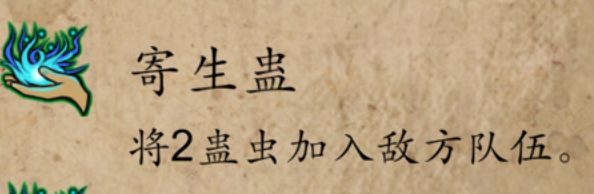 寄生蛊
将2蛊虫加入敌方队伍。